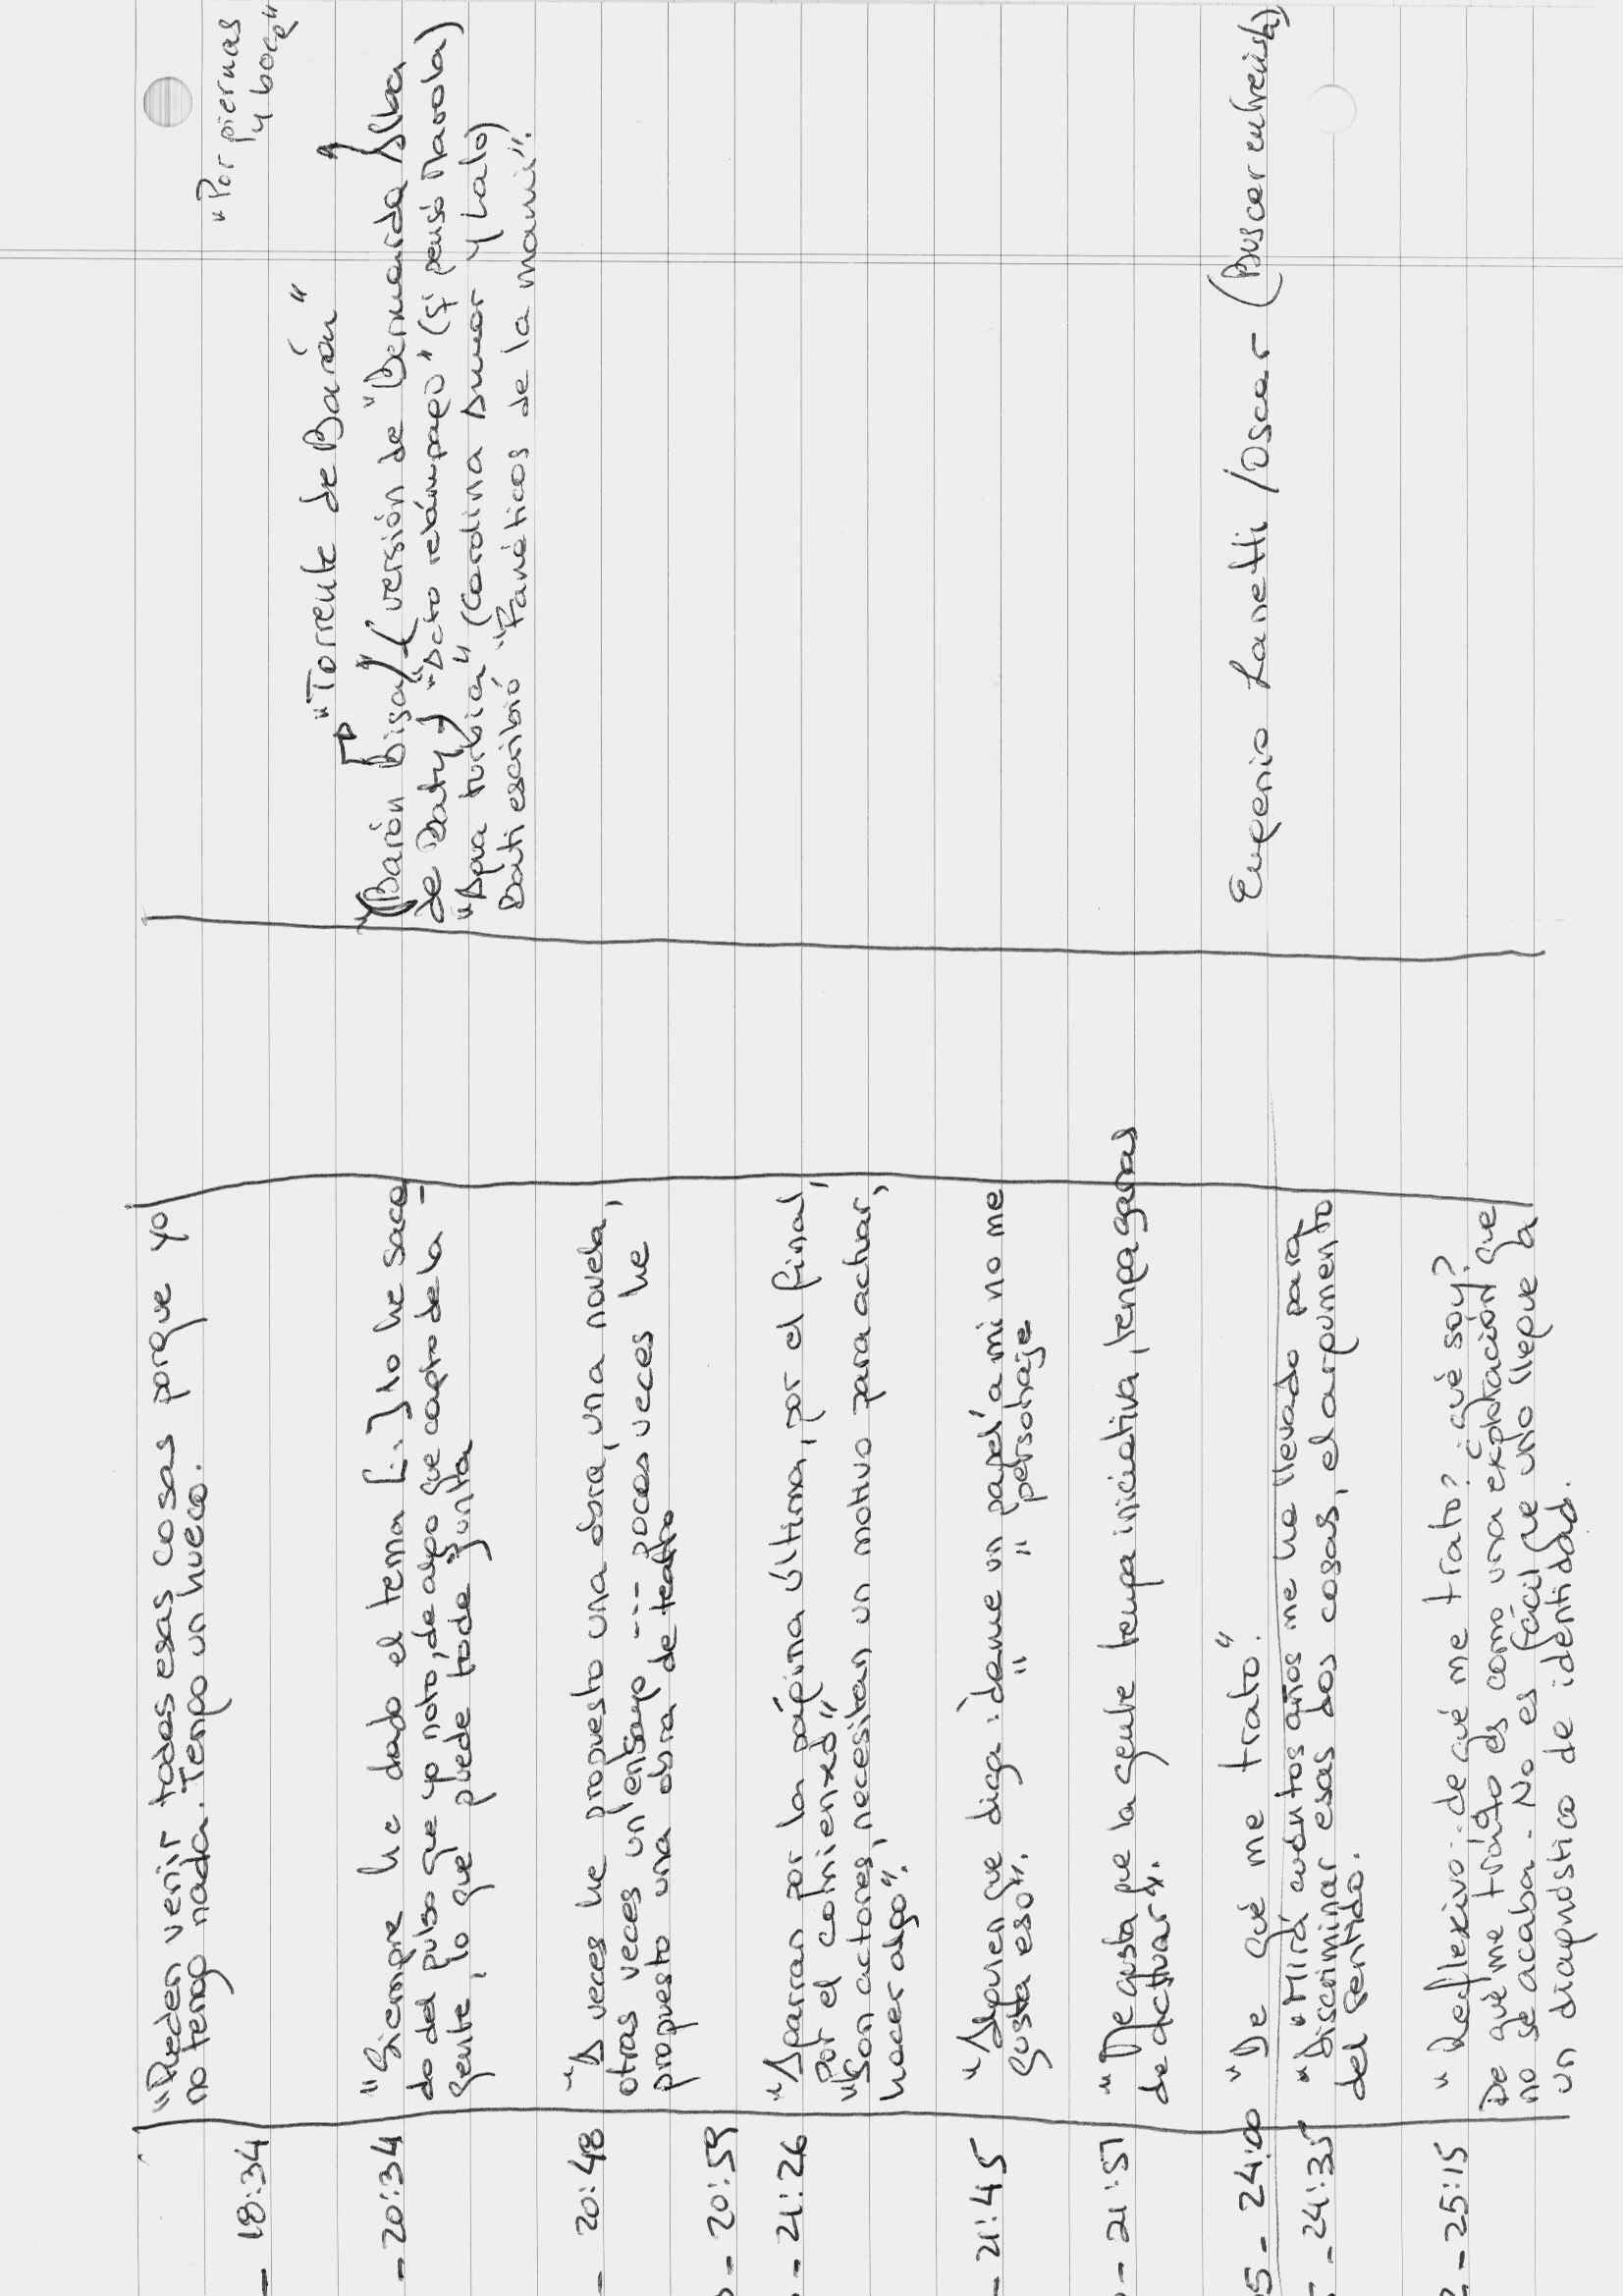 "Pueden venir todas esas cosas porque yo
no tengo nada. Tengo un hueco.
- 18:34
- 20:34 "Siempre he dado el tema [...] lo he saca
do del pulso que yo noto, de algo que capto de la
gente, lo que puede tode junta
- 20:48 "A veces he propuesto una obra, una novela,
otras veces un ensayo --- pocas veces he
propuesto una obra de teatro
- 20:59
- 21:26 "Agarran por la página última, por el final,
por el comienzo"
"Son actores, necesitan un motivo para actuar,
hacer algo".
- 21:45 "Alguien que diga: deme un papel a mi no me
" " personaje
gusta eso".
- 21:51 "Me gusta que la gente tenga iniciativa, tenga ganas
de actuar".
5 - 24:00 "De qué me trato".
- 24:35 "Mirá cuántos años me he llevado para
discriminar esas dos cosas, el argumento
del sentido.
2 - 25:15 "Reflexivo: de qué me trato? ¿qué soy?
De qué me trato es como una explotación que
no se acaba. No es fácil que uno llegue a
un diagnóstico de identidad.
"Por piernas
y boca"
"Torrente de Barón"
"Barón Biza" (versión de "Bernarda Alba
de Batty) "Acto relámpago" (sí pensó Marola)
"Agua turbia" (Carolina Amor y Lalo)
Bati escribió "Fanéticos de la mani".
Eugenio Zanetti / Oscar (Buscar entrevista)